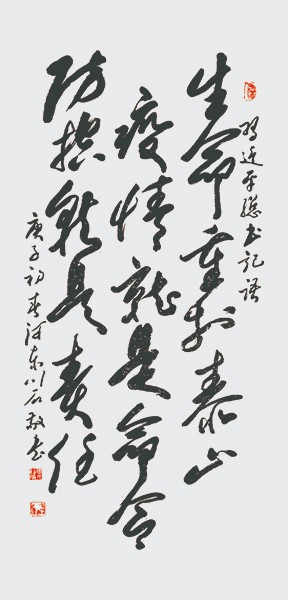 习近平总书记语
生命重于泰山
疫情就是命令
防控就是责任
庚子初春河东川石敬书